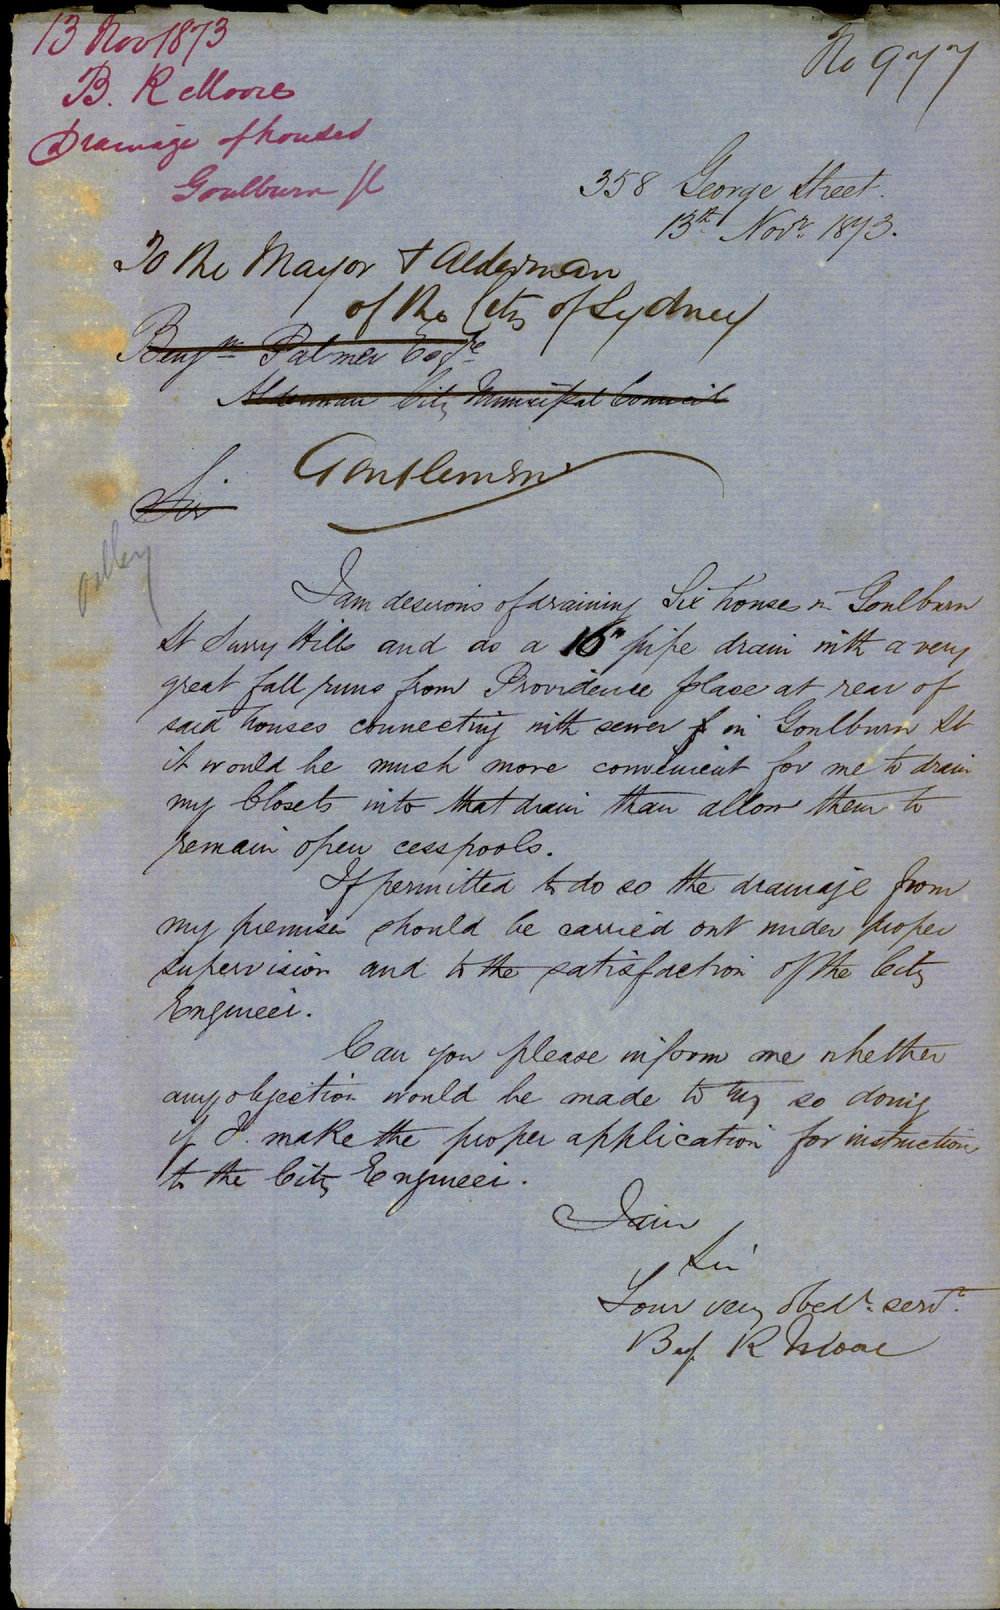 13 Nov 1873
B. R Moore
Drainage of houses
Goulburn St
No 977
358 George Street.
13th Novr. 1873.
To the Mayor & Alderman
of the City of Sydney
Benjmn Palmer Esqre
Alderman City Municipal Council
Gentlemen
Sir
I am desirous of draining Six house in Goulburn
St Surry Hills and as a 16" pipe drain with a very
great fall runs from Providence place at rear of
said houses connecting with sewer in Goulburn St
it would be much more convenient for me to drain
my Closets into that drain than allow them to
remain open cesspools.
If permitted to do so the drainage from
my premises should be carried out under proper
supervision and to the satisfaction of the City
Engineer.
Can you please inform me whether
any objection would be made to my so doing
if I. make the proper application for instruction
to the City Engineer.
I am
Sir
Your very obedt. servt.
Benj. R Moore